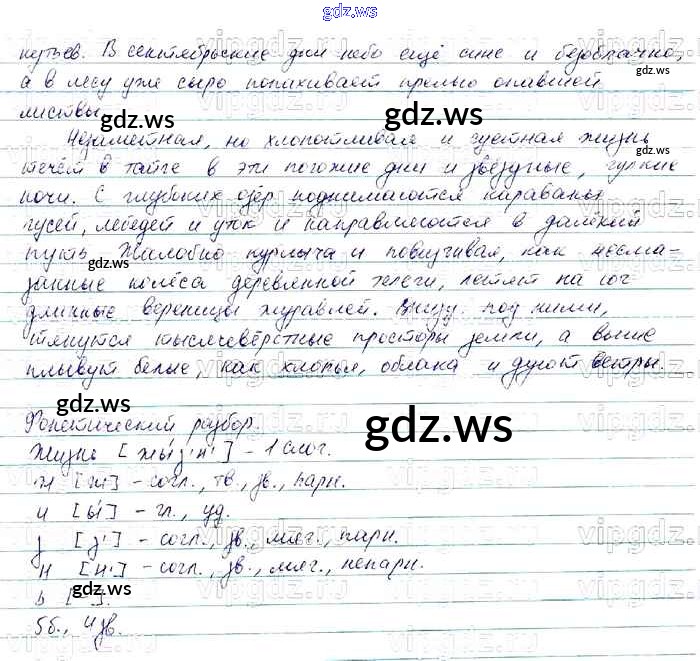 gdz.ws
кутьев. В сентябрьские дни небо ещё сине и безоблачно,
а в лесу уже сыро попахивает прелью опавшей
листвы.
gdz.ws
Незаметная, но хлопотливая и суетная жизнь
gdz.ws
течёт в тайге в эти погожие дни и звёздные, гулкие
ночи. С глубоких озёр поднимаются караваны
gdz.ws
гусей, лебедей и уток и направляются в далёкий
путь. Жалобно курлыча и повизгивая, как несма-
gdz.ws
занные колёса деревенной телеги, летят на юг
длинные вереницы журавлей. Внизу под ними,
тянутся тысячевёрстные просторы земли, а выше
плывут белые, как хлопья, облака и дуют ветры.
gdz.ws
Фонетический разбор.
gdz.ws
Жизнь [жы́з'н'] - 1 слог.
ж [ж] - согл., тв., зв., парн.
и [ы́] - гл., уд.
з [з'] - согл., зв., мягк., парн.
н [н'] - согл., зв., мягк., непарн.
ь [-].
gdz.ws
gdz.ws
5 б., 4 зв.
vipgdz.ws